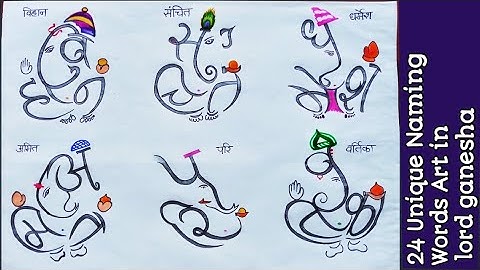 विहान
संचित
धर्मेश
अमित
परि
वर्तिका
24 Unique Naming
Words Art in
lord ganesha